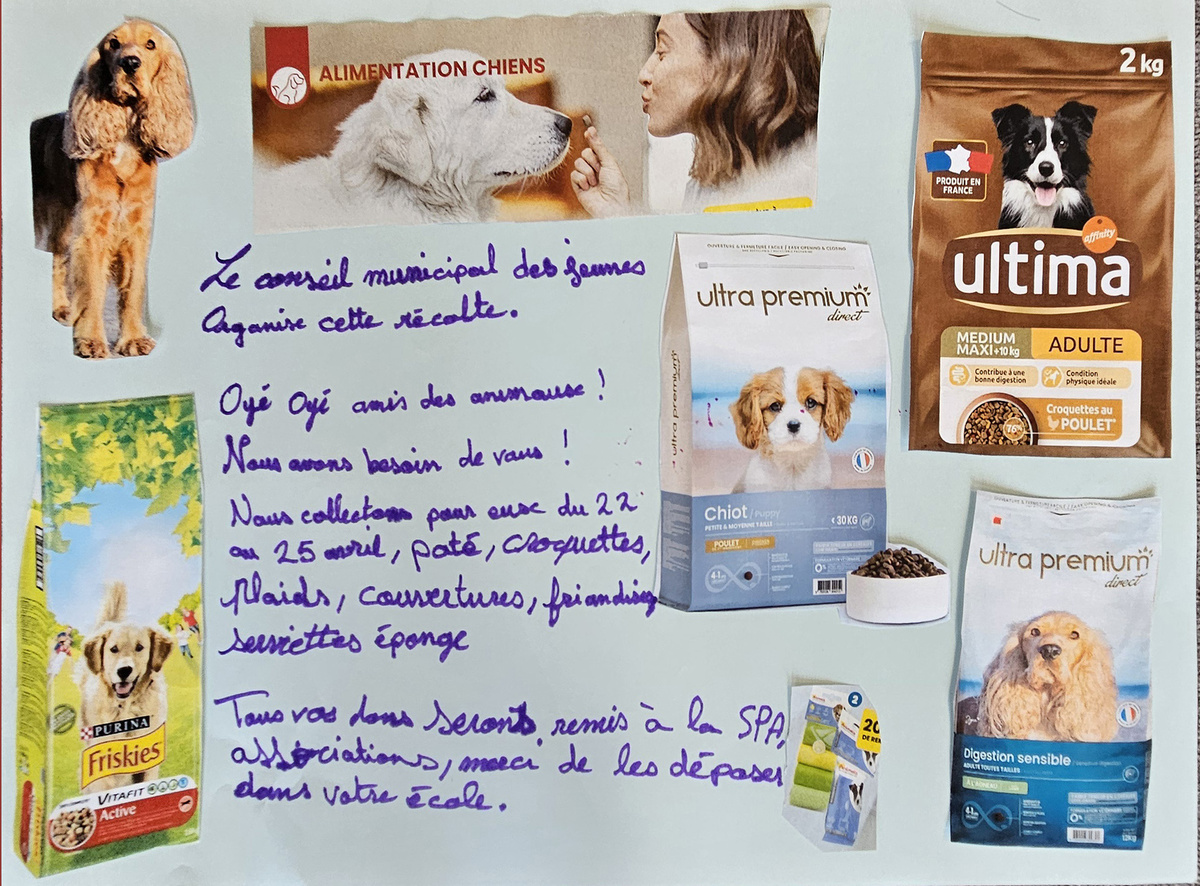 ALIMENTATION CHIENS
2 kg
PRODUIT EN
FRANCE
affinity
ultima
MEDIUM
MAXI +10 kg
ADULTE
Contribue à une
bonne digestion
Condition
physique idéale
Croquettes au
POULET*
76%
Le conseil municipal des jeunes
Organise cette récolte.
Oyé Oyé amis des animause !
Nous avons besoin de vous !
Nous collectons pour euse du 22
au 25 avril, paté, croquettes,
Plaids, couvertures, friandises,
serviettes éponge
Tous vos dons seront remis à la SPA,
associations, merci de les déposer
dans votre école.
OUVERTURE & FERMETURE FACILE / EASY OPENING & CLOSING
ultra premium
direct
ultra premium
direct
Chiot / Puppy
PETITE & MOYENNE TAILLE
< 30 KG
POULET
4în1
0%
PURINA
Friskies
VITAFIT
Active
2
20
DE REM
ultra premium
direct
Digestion sensible
ADULTE TOUTES TAILLES
0%
12kg